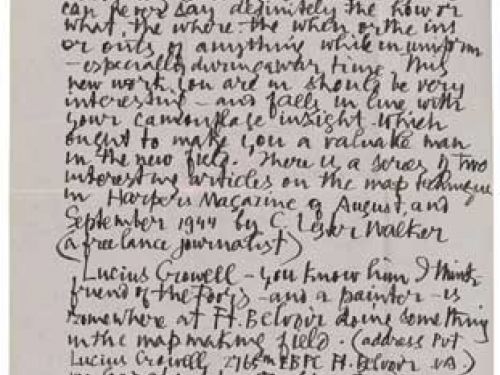 can never say definitely the how or
what, the where the when or the ins
or outs of anything while in uniform
- especially during a war time. This
new work you are in should be very
interesting - and falls in line with
your camouflage insight which
ought to make you a valuable man
in the new field. There is a series of two
interesting articles on the map technique
in Harpers Magazine of August, and
September 1944 by C Lester Walker
(a freelance journalist)
Lucius Crowell - you know him I think
friend of the - and a painter - is
somewhere at Ft. Belvoir doing something
in the map making field. (address Pvt
Lucius Crowell, Ft. Belvoir VA)